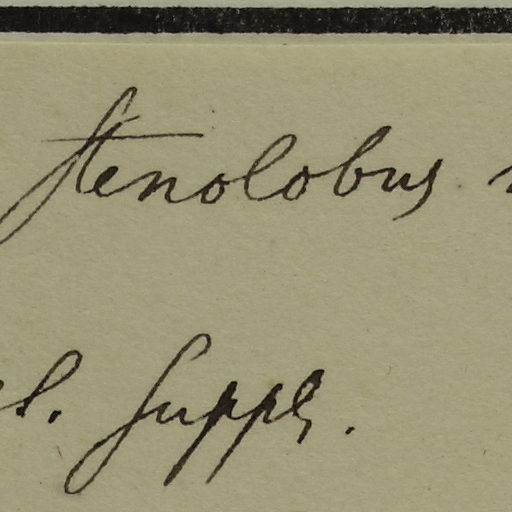 stenolobus
Suppl.